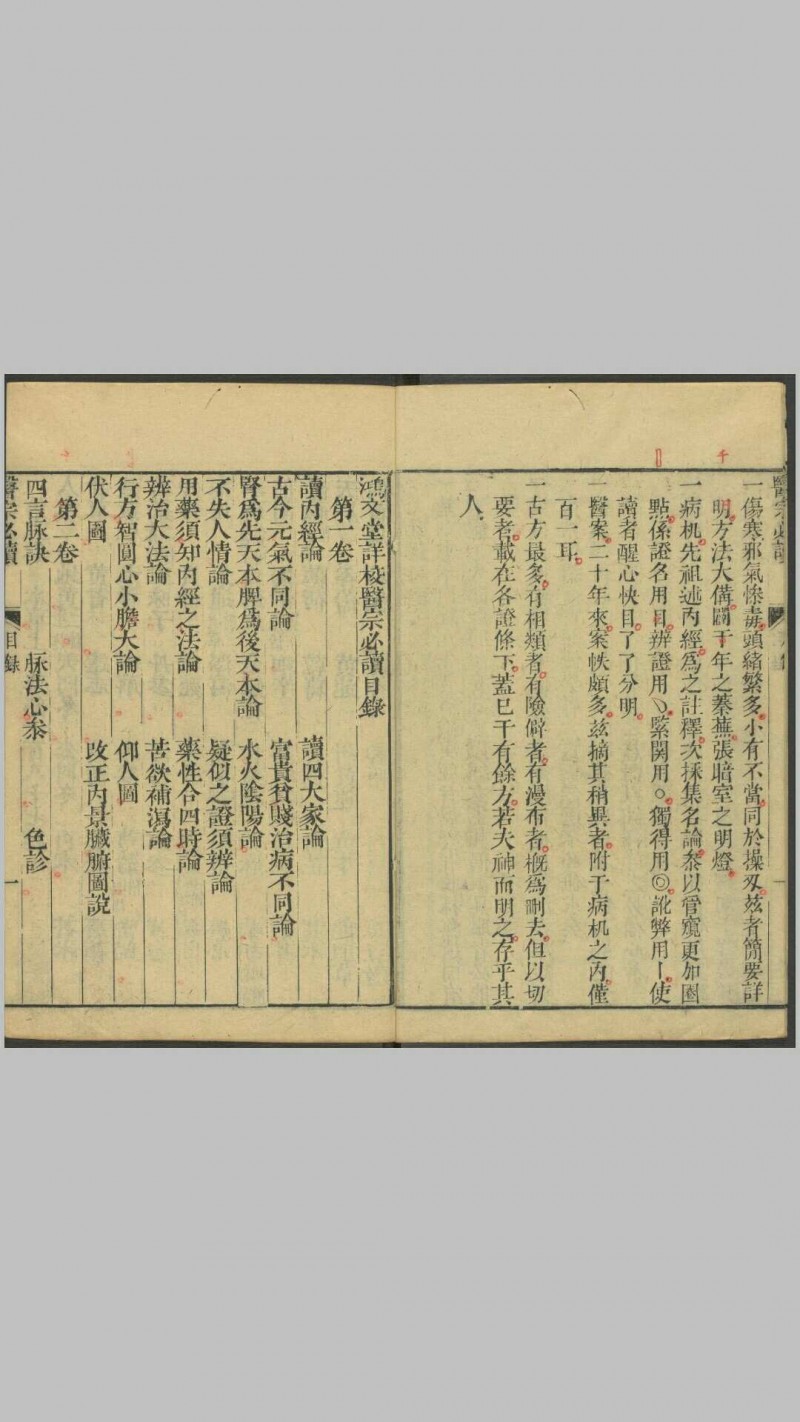 一傷寒邪氣慘毒頭緒繁多小有不當同於操刄茲者簡要詳
明方法大備闢千年之蓁蕪張暗室之明燈
一病机先祖述內經爲之註釋次採集名論叅以管窺更加圈
點係證名用目辨證用乀緊関用○獨得用◎訛弊用丨使
讀者醒心快目了了分明
一醫案二十年來案帙頗多茲摘其稍異者附于病机之內僅
百一耳
一古方最多有相類者有險僻者有漫布者槪爲刪去但以切
要者載在各證條下葢已千有餘方若夫神而明之存乎其
人
鴻文堂詳校醫宗必讀目錄
第一卷
讀內經論 讀四大家論
古今元氣不同論 富貴貧賤治病不同論
腎爲先天本脾爲後天本論 水火陰陽論
不失人情論 疑似之證須辨論
用藥須知內經之法論 藥性合四時論
辨治大法論 苦欲補瀉論
行方智圓心小膽大論 仰人圖
伏人圖 攺正內景臟腑圖說
第二卷
四言脉訣 脉法心叅 色診
醫宗必讀 目錄 一